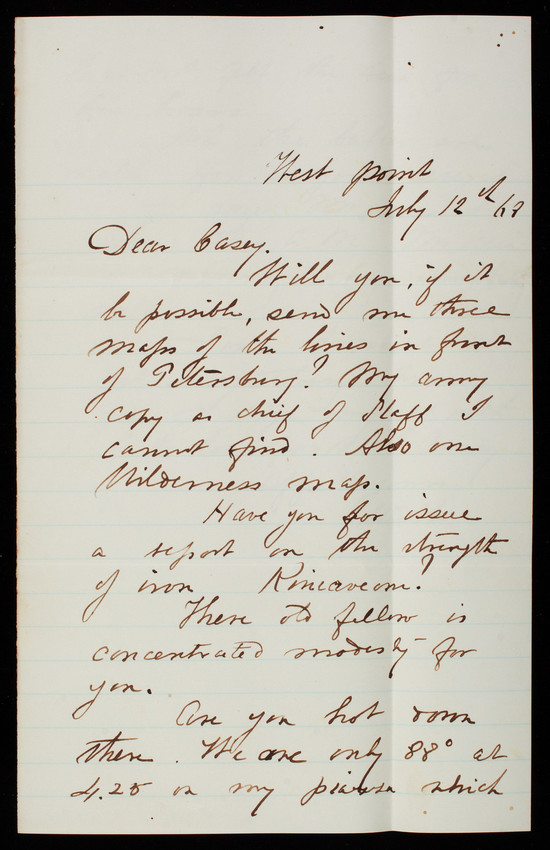 West point
July 12th 68
Dear Casey.
Will you, if it
be possible, send me three
maps of the lines in front
of Petersburg? My army
copy as chief of Staff I
cannot find. Also one
Wilderness map.
Have you for issue
a report on the strength
of iron ?
There old fellow is
concentrated modesty for
you.
Are you hot down
there. We are only 88° at
4.25 on my piazza which